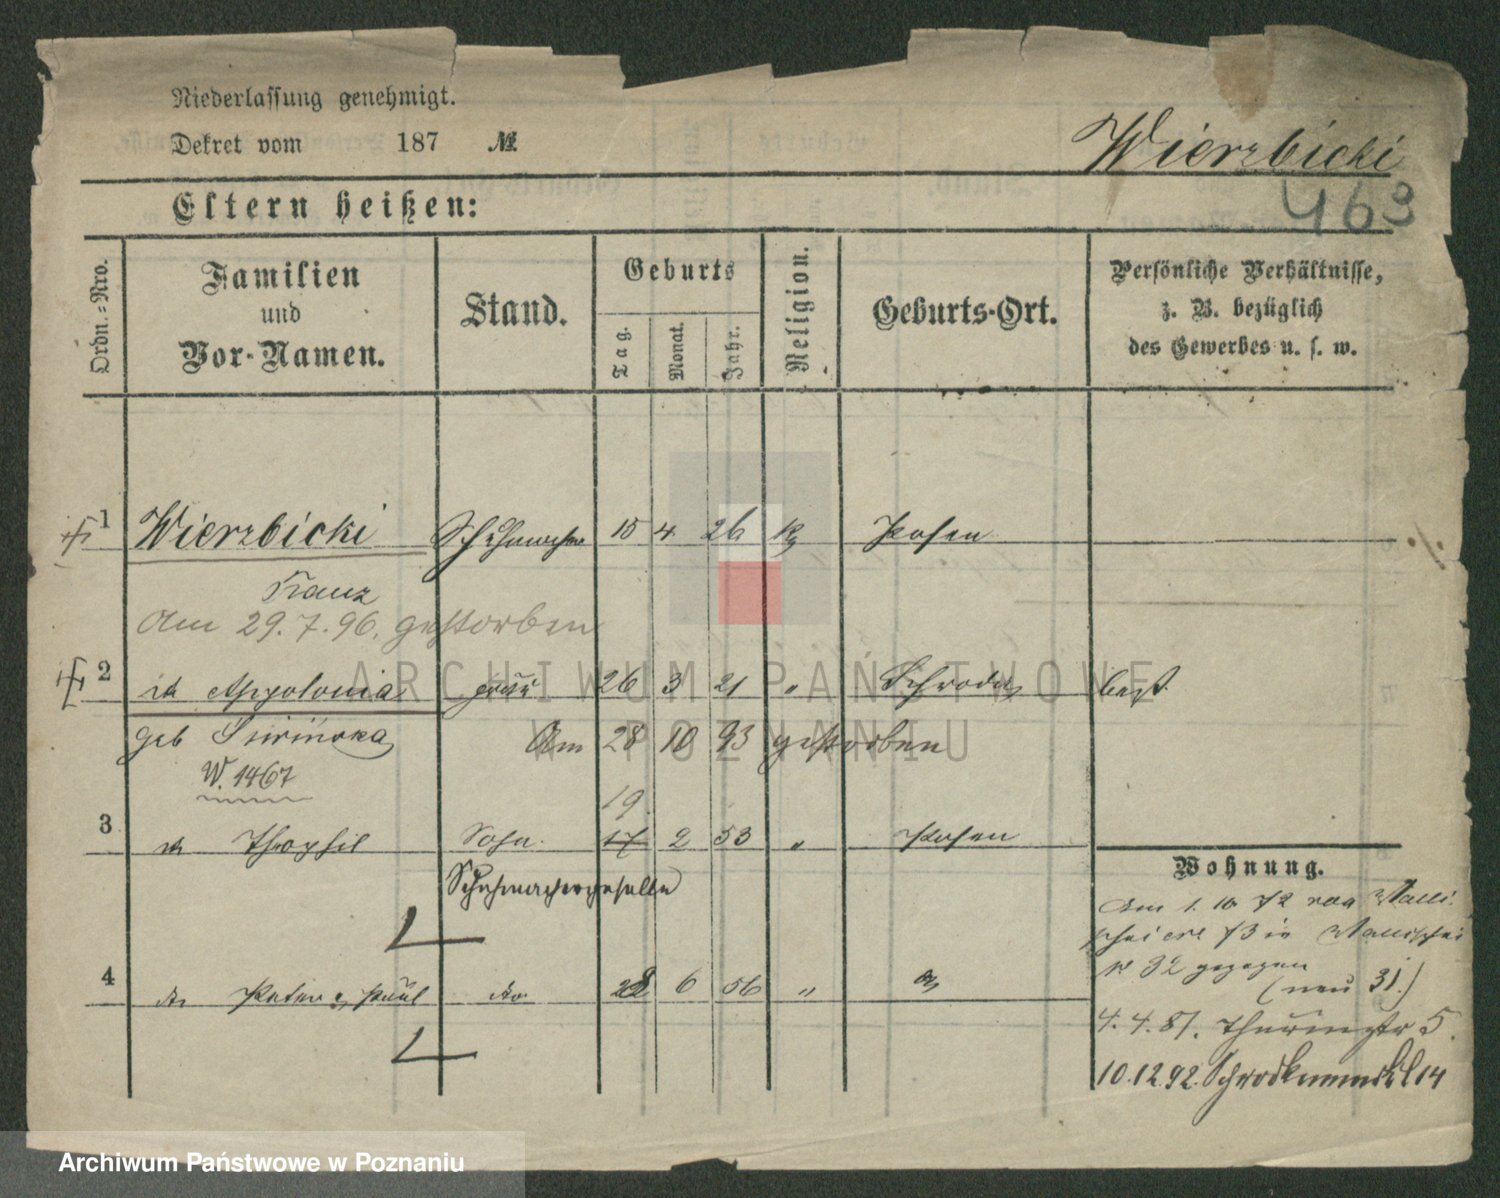 Niederlassung genehmigt.
Dekret vom 187 №
Wierzbicki
463
Eltern heißen:
Ordn.-Nro.
Familien
und
Vor-Namen.
Stand.
Geburts
Tag.
Monat.
Jahr.
Religion.
Geburts-Ort.
Persönliche Verhältnisse,
z. B. bezüglich
des Gewerbes u. s. w.
1 Wierzbicki Schuhmacher 15 4 26 Posen
Franz
Am 29.7.96. gestorben
2 Appolonia frau 26 3 21 " Schroda
geb
Am 28 10 93 gestorben
W. 1467
19.
3 Theophil Sohn. 17 2 53 " Posen
Schuhmachergeselle
4 Peter, Paul do 28 6 56 "
Wohnung.
Am 1. 10 72 von Walli-
schei 73 in Wallischei
No 32 gezogen
(neu 31.)
4. 4. 81. 5.
10.12.92. 14
ARCHIWUM PAŃSTWOWE
W POZNANIU
Archiwum Państwowe w Poznaniu